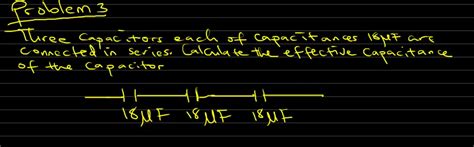 Problem 3
Three Capacitors each of Capacitances 18µF are
connected in series. Calculate the effective Capacitance
of the Capacitor
18µF 18µF 18µF